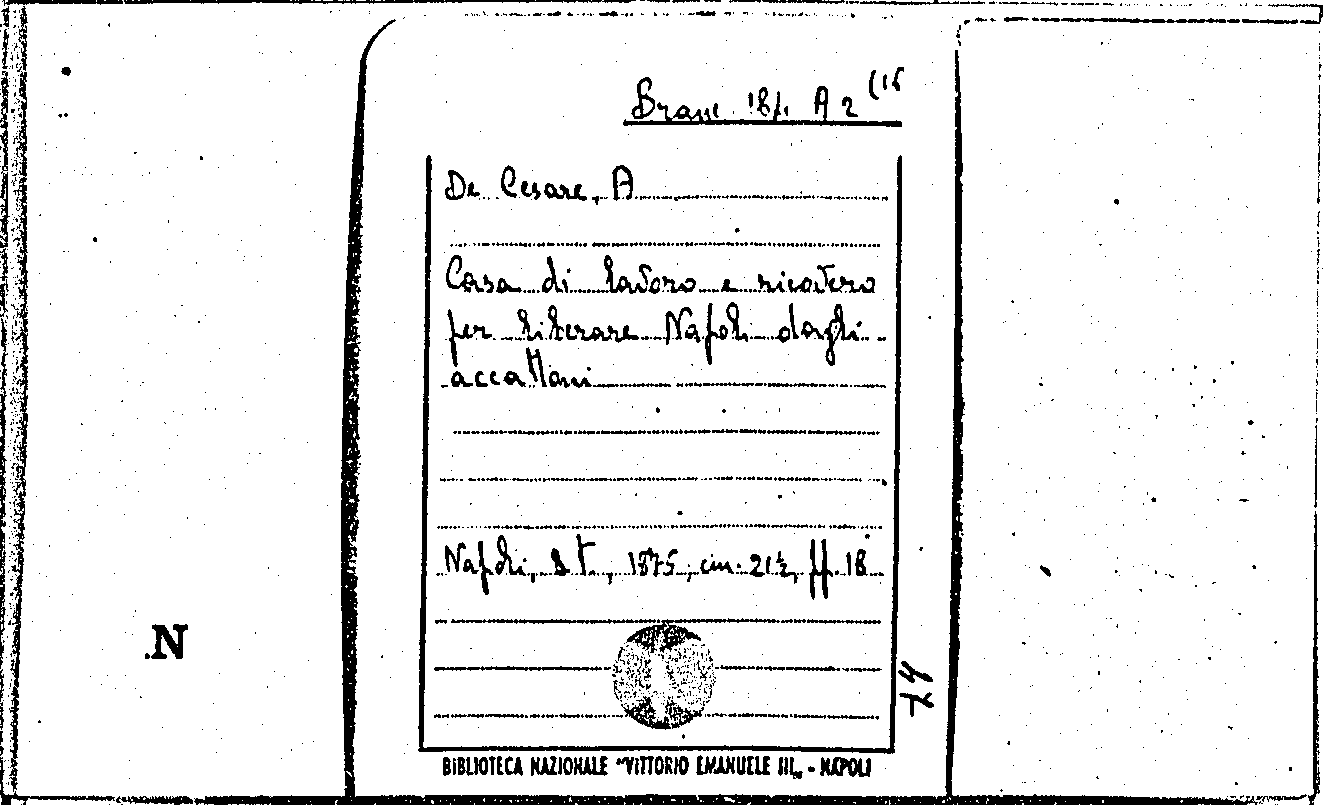 A 2 (15
De Cesare, A
Casa di lavoro e ricovero
per liberare Napoli dagli
accattoni
Napoli, s t, 1875, cm. 21½, pp. 18
N
74
BIBLIOTECA NAZIONALE "VITTORIO EMANUELE III„ - NAPOLI